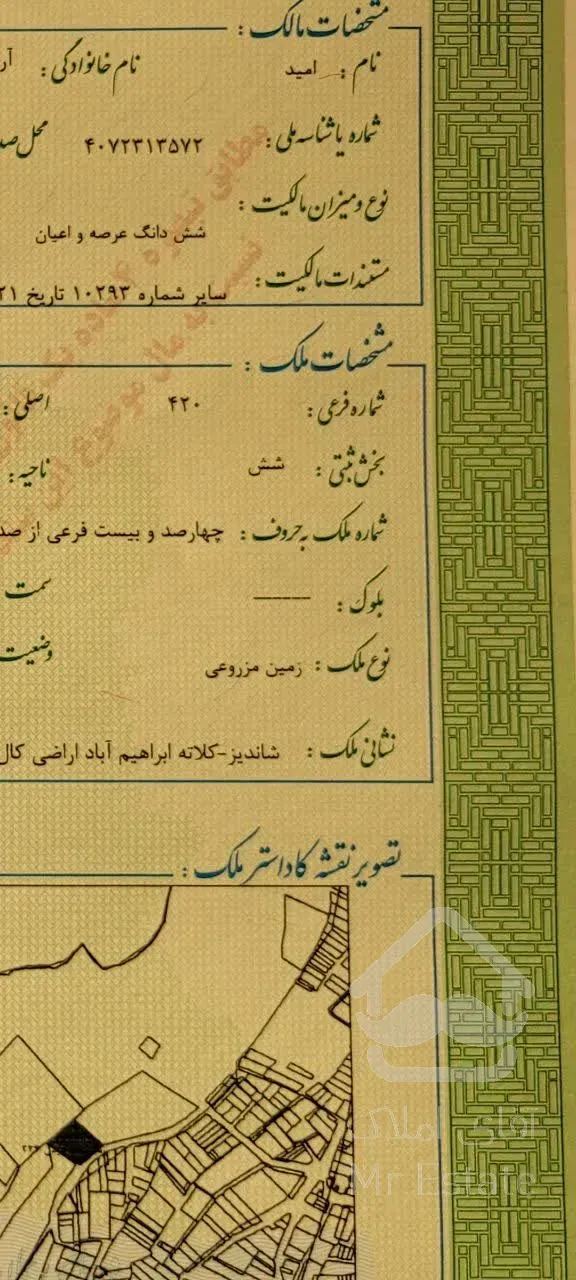 مشخصات مالک :
نام : امید نام خانوادگی : آر
شماره یا شناسه ملی : ۴۰۷۲۳۱۳۵۷۲ محل صد
نوع و میزان مالکیت :
شش دانگ عرصه و اعیان
مستندات مالکیت : سایر شماره ۱۰۲۹۳ تاریخ ۲۱
مشخصات ملک :
شماره فرعی : ۴۲۰ اصلی :
بخش ثبتی : شش ناحیه :
شماره ملک به حروف : چهارصد و بیست فرعی از صد
بلوک : ------ سمت
نوع ملک : زمین مزروعی وضعیت
نشانی ملک : شاندیز-کلاته ابراهیم آباد اراضی کال
تصویر نقشه کاداستر ملک :
آقای املاک
Mr Estate